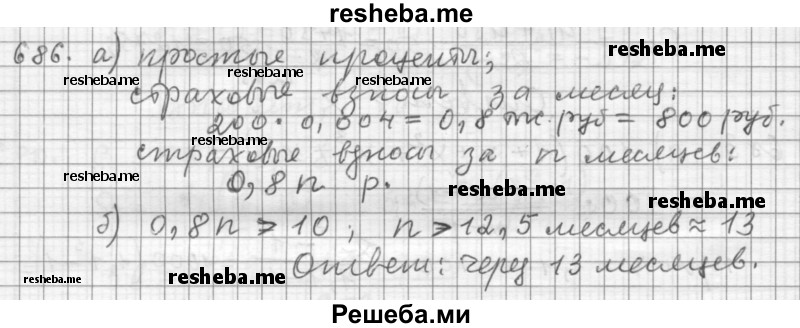 resheba.me
686. а) простые проценты; resheba.me
resheba.me resheba.me
страховые взносы за месяц:
200 · 0,004 = 0,8 тыс. руб = 800 руб.
resheba.me
страховые взносы за n месяцев:
resheba.me
0,8n р. resheba.me resheba.me
б) 0,8n > 10 ; n > 12,5 месяцев ≈ 13
resheba.me
Ответ: через 13 месяцев.
resheba.me resheba.me resheba.me
Решеба.ми